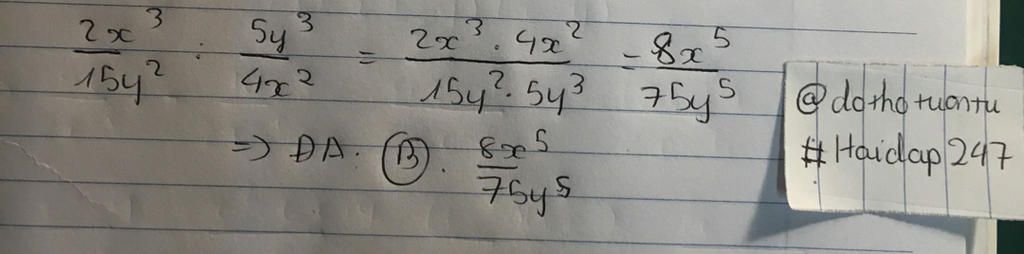 2x³/15y² : 5y³/4x² = 2x³ . 4x²/15y² . 5y³ = 8x⁵/75y⁵
=> ĐA. B. 8x⁵/75y⁵
@dothotuantu
#Hoidap247